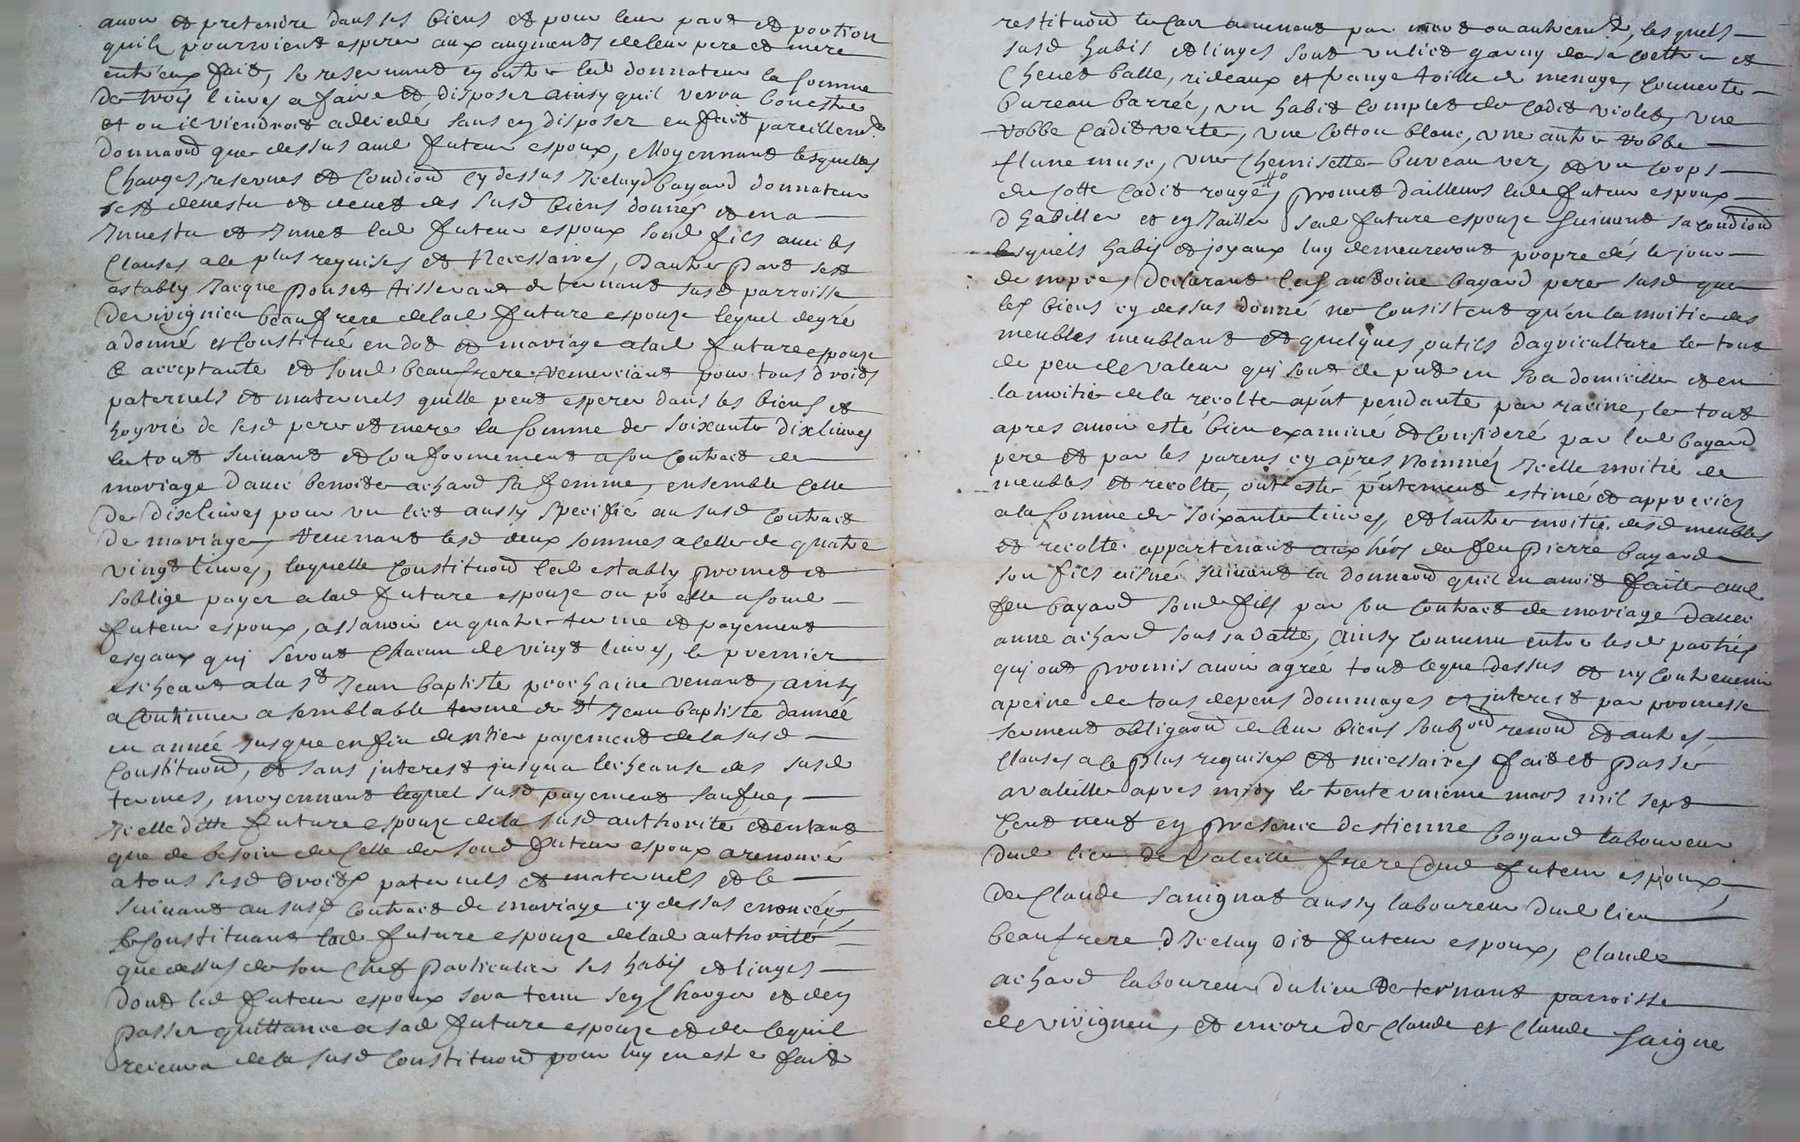 avoir et pretendre dans ses biens et pour leur part et portion
quils pourroient esperer aux augments de leur pere et mere
entr'eux fait, se reservant en outre led donnateur la somme
de trois livres a faire et disposer ainsy quil verra bon estre
et ou il viendroit a deceder sans en disposer en fait pareillemt
donnaond que dessus aud futeur espoux, Moyennant lesquelles
Charges, reserves et Condiond cy dessus Iceluyd bayard donnateur
sest devestu et devet des susd biens donnés et en a
Investu et Invet led futeur espoux sond fils avec les
Clauses a ce plus requises et Necessaires, Dautre Part sest
estably Jacque Ponset tisserant de ternant susd parroisse
De vignieu beaufrere de lad future espouze lequel de gré
a donné et Constitué en dot et mariage a lad future espouze
Ce acceptante et sond beaufrere remerciant pour tous droits
paternels et maternels quelle peut esperer dans les biens et
hoyrie de sesd pere et mere la somme de soixante dix livres
le tout suivant et Conformement a son Contract de
mariage d'avec benoite achard sa femme, ensemble Celle
De dix livres pour un lict aussy specifié au susd Contract
De mariage, Revenant lesd deux sommes a Celle de quatre
vingt livres, laquelle Constituond led estably promet et
soblige payer a lad future espouze ou pr elle a sond
futeur espoux, assavoir en quatre terme et payement
esgaux qui seront Chacun de vingt livres, le premier
escheant a la st Jean baptiste prochaine venant, ainsy
a Continuer a semblable terme de st Jean baptiste dannéé
en année Jusque en fin dernier payement de la susd
Constituond, et sans interest jusqua lecheance des susd
termes, moyennant lequel susd payement
Icelle ditte future espouze de la susd authorité et entant
que de besoin de Celle de sond futeur espoux a renoncé
a tous sesd droits paternels et maternels et le
suivant au susd Contract de mariage cy dessus enoncée,
se Constituant lad future espouze de lad authorité
que dessus de son Chef particulier ses habis et linges
Dont led futeur espoux sera tenu sen Charger et den
passer quittance a sad future espouze et de Cequil
recevra de la susd Constituond pour luy en estre fait
restituond le Cas avenant par mort ou autremt, lesquels
susd habis et linges sont un lict garny de sa Coettre et
Chevet balle, rideaux et frange toille de menage, Couverte
bureau barrée, un habit Complet de Cadit violet, une
robbe Cadit verte, une Cotton blanc, une autre robbe
une Chemisette bureau ver, et un Corps
de Cotte Cadit rouge, promet dailleurs led futeur espoux
dhabiller et enJoailler sad future espouze suivant sa Condiond
lesquels habis et joyaux luy demeureront propre dés le jour
de nopce, Declarant led antoine bayard pere susd que
les biens cy dessus donné ne Consistent qu'en la moitie des
meubles meublant et quelques outils dagriculture le tout
de peu de valeur qui sont de put en son domicille et en
la moitie de la recolte apñt pendante par racine, le tout
apres avoir esté bien examiné et Consideré par led bayard
pere et par les parens cy apres Nommés Icelle moitie de
meubles et recolte, ont esté pñtement estimé et appreciez
a la somme de soixante livres, et lautre moitie desd meubles
et recolte appartenant aux hers de feu pierre bayard
son fils aisné suivant la donnaond quil en avoit faite aud
feu bayard sond fils par son Contract de mariage Davec
anne achard sous sa datte, Ainsy Convenu entre lesd parties
qui ont promis avoir agréé tout Ceque dessus et ny Contrevenir
a peine de tous depens dommages et interest par promesse
serment obligaond de leur biens renond et autres
Clauses a ce plus requises et necessaires fait et passé
a valeille apres midy le trente unieme mars mil sept
Cent neuf en presence destienne bayard laboureur
dud lieu de valeille frere dud futeur espoux,
De Claude savignat aussy laboureur dud lieu
beaufrere dIceluy dit futeur espoux, Claude
achard laboureur du lieu De ternant parroisse
de vivignieu, et encore de Claude et Claude Saigne